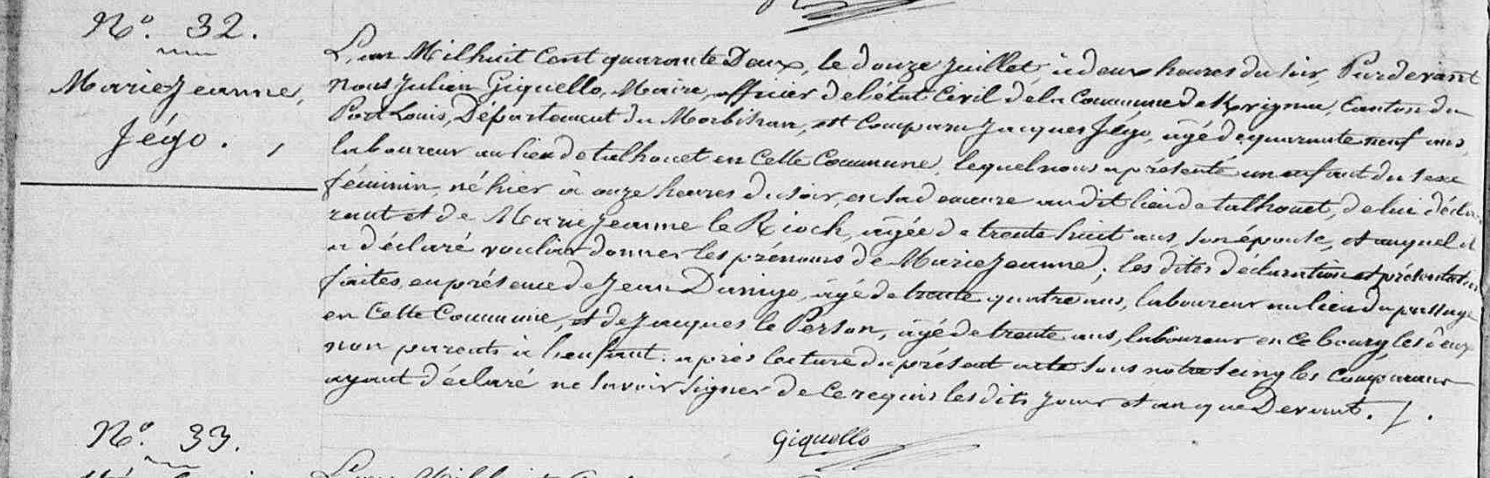 N.o 32.
Marie Jeanne,
Jégo. ,
L'an Mil huit Cent quarante Deux, le douze juillet, à deux heures du soir, Pardevant
Nous Julien Giquello, Maire, officier de l'état Civil de la Commune de Kervignac, Canton du
Port Louis, Département du Morbihan, est Comparu Jacques Jégo, âgé de quarante neuf ans,
laboureur au lieu de talhouet en Cette Commune, lequel nous a présenté un enfant du sexe
féminin, né hier à onze heures du soir, en sa demeure au dit lieu de talhouet, de lui décla
rant et de Marie Jeanne le Rioch, âgée de trente huit ans, son épouse, et auquel il
a déclaré vouloir donner les prénoms de Marie Jeanne; les dites déclaration et présentation
faites, en présence de Jean Danigo, âgé de trente quatre ans, laboureur au lieu du passage
en Cette Commune, et de Jacques le Person, âgé de trente ans, laboureur en ce bourg, les deux
non parents à l'enfant. après lecture du présent acte sous notre seing les Comparans
ayant déclaré ne savoir signer de ce requis les dits jour et an que Devant. /.
Giquello
N.o 33.
L'an Mil huit